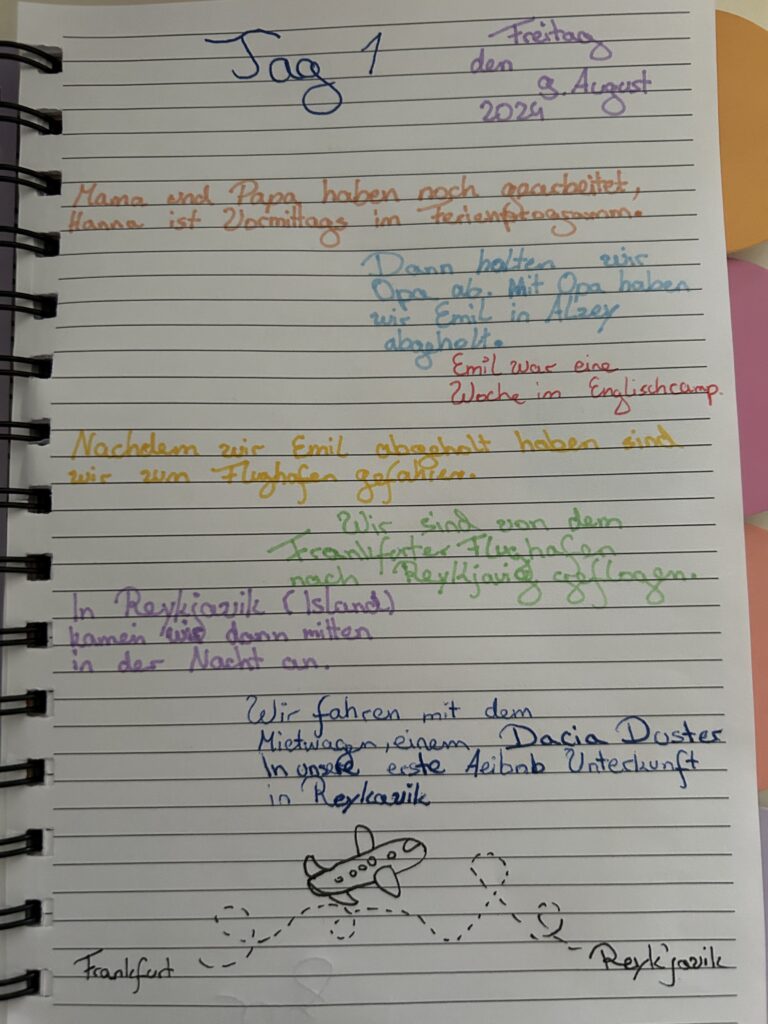 Tag 1
Freitag
den
9. August
2024
Mama und Papa haben noch gaarbeitet,
Hanna ist Vormittags im Ferienprogramm.
Dann holten wir
Opa ab. Mit Opa haben
wir Emil in Alzey
abgeholt.
Emil war eine
Woche im Englischcamp.
Nachdem wir Emil abgeholt haben sind
wir zum Flughafen gefahren.
Wir sind von dem
Frankfurter Flughafen
nach Reykjavig geflogen.
In Reykjavik (Island)
kamen wir dann mitten
in der Nacht an.
Wir fahren mit dem
Mietwagen, einem Dacia Duster
In unsere erste Aeibnb Unterkunft
in Reykavik
Frankfurt
Reykjavik